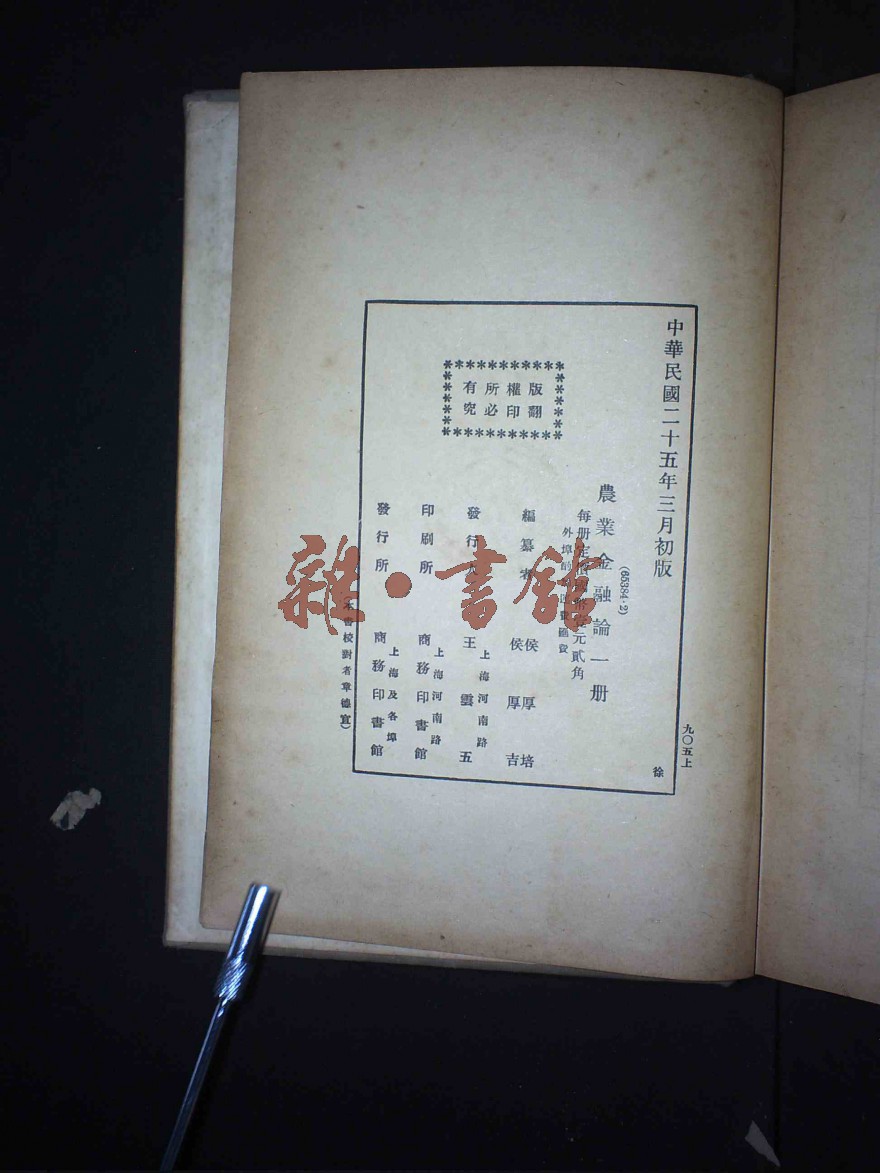 中華民國二十五年三月初版
九〇五上
徐
農業金融論一册
(65384·2)
每册定價國幣壹元貳角
外埠酌加運費匯費
版權所有
翻印必究
編纂者
侯厚培
侯厚吉
發行人
王雲五
上海河南路
印刷所
商務印書館
上海河南路
發行所
商務印書館
上海及各埠
(本書校對者章德宣)
雜·書館